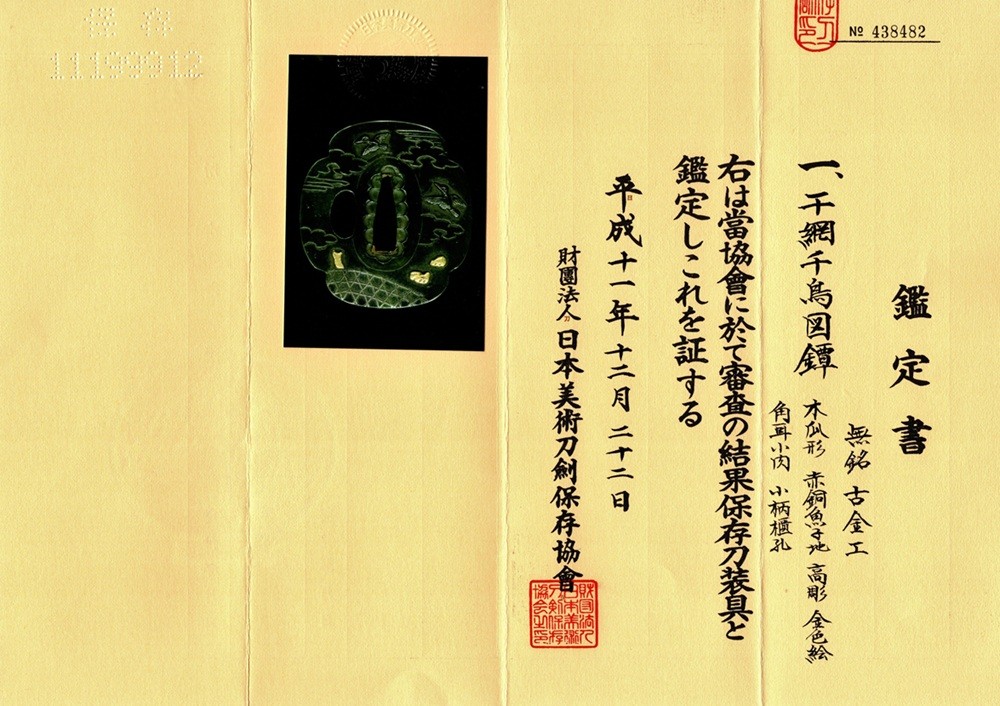 № 438482
鑑定書
一、干網千鳥図鐔
無銘 古金工
木瓜形 赤銅魚子地 高彫 金色絵
角耳小肉 小柄櫃孔
右は當協會に於て審査の結果保存刀装具と
鑑定しこれを証する
平成十一年十二月二十二日
財團法人日本美術刀剣保存協會
保存
11199912